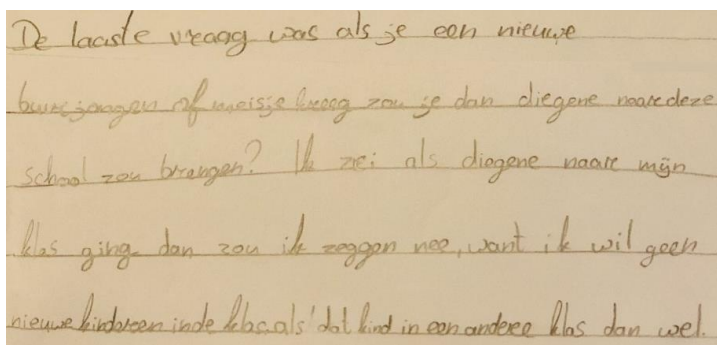 De laatste vraag was als je een nieuwe
buurjongen of meisje kreeg zou je dan diegene naar deze
school zou brengen? Ik zei als diegene naar mijn
klas ging dan zou ik zeggen nee, want ik wil geen
nieuwe kinderen in de klas als dat kind in een andere klas dan wel.